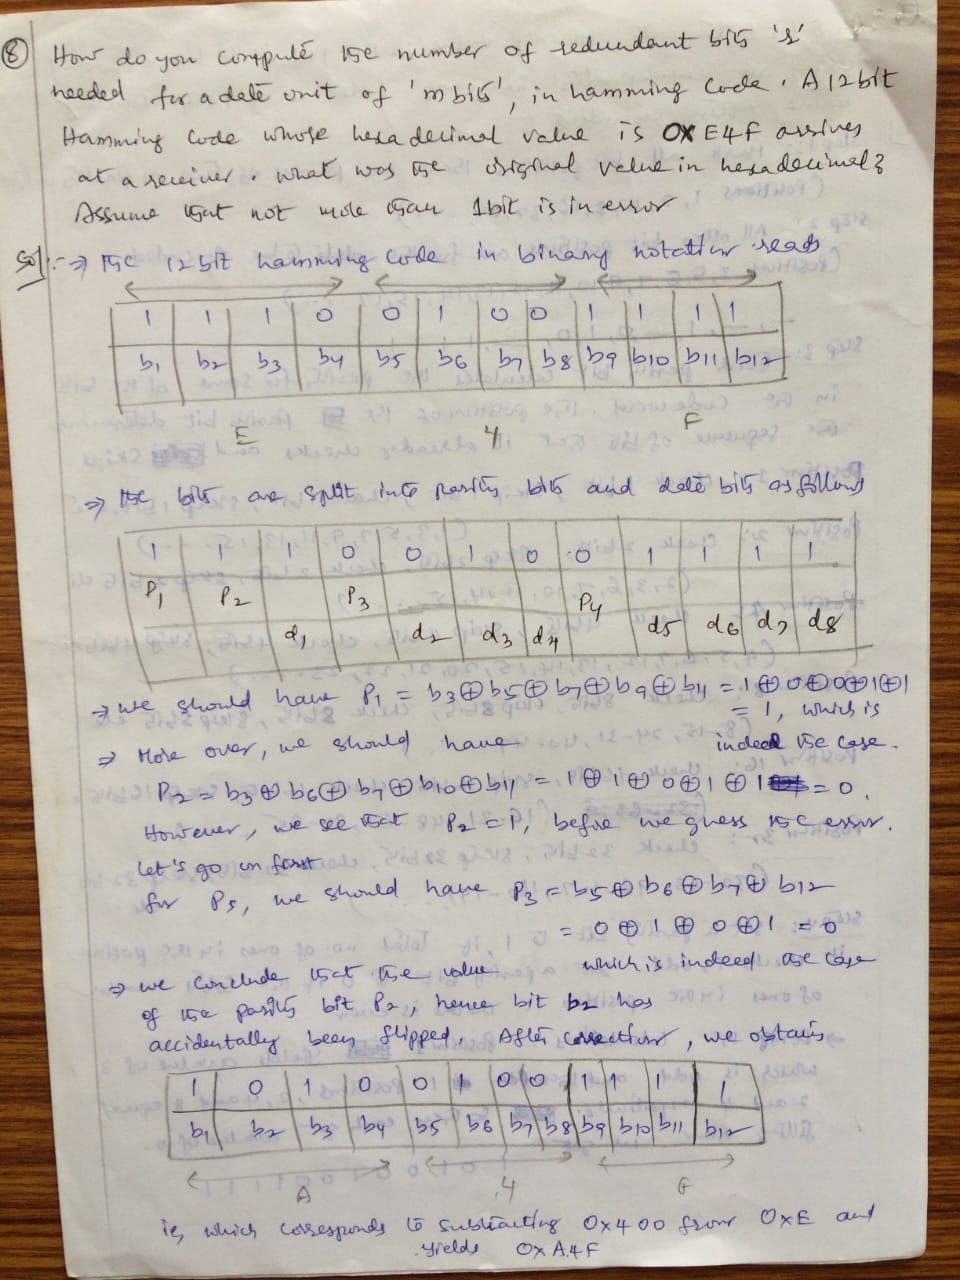 ⑧ How do you compute the number of redundant bits 'r'
needed for a data unit of 'm bits', in hamming Code. A 12 bit
Hamming Code whose hexadecimal value is 0X E4F arrives
at a receiver. what was the original value in hexadecimal?
Assume that not more than 1 bit is in error
Sol:- ⇒ The 12 bit hamming code in binary notation reads
1 1 1 0 0 1 0 0 1 1 1 1
b1 b2 b3 b4 b5 b6 b7 b8 b9 b10 b11 b12
E 4 F
⇒ The bits are split into parity bits and data bits as follows
1 1 1 0 0 1 0 0 1 1 1 1
P1 P2 P3 P4
d1 d2 d3 d4 d5 d6 d7 d8
→ we should have P1 = b3⊕b5⊕b7⊕b9⊕b11 = 1⊕0⊕0⊕1⊕1
= 1, which is
indeed the case.
⇒ More over, we should have
P2 = b3⊕b6⊕b7⊕b10⊕b11 = 1⊕1⊕0⊕1⊕1 = 0.
However, we see that P2 = 1, before we guess the error.
Let's go on first
for P3, we should have P3 = b5⊕b6⊕b7⊕b12
= 0⊕1⊕0⊕1 = 0
which is indeed the case
⇒ we conclude that the value
of the parity bit P2, hence bit b2 has
accidentally been flipped. After correction, we obtain
1 0 1 0 0 1 0 0 1 1 1 1
b1 b2 b3 b4 b5 b6 b7 b8 b9 b10 b11 b12
A 4 F
is, which corresponds to subtracting 0x400 from 0xE and
yields 0x A4F